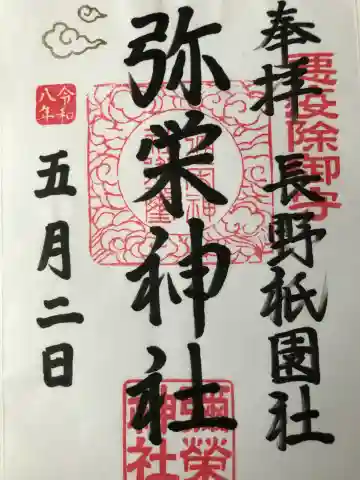 奉拝 長野祇園社
悪疫除御守
弥栄神社
彌榮神社
令和八年
五月二日